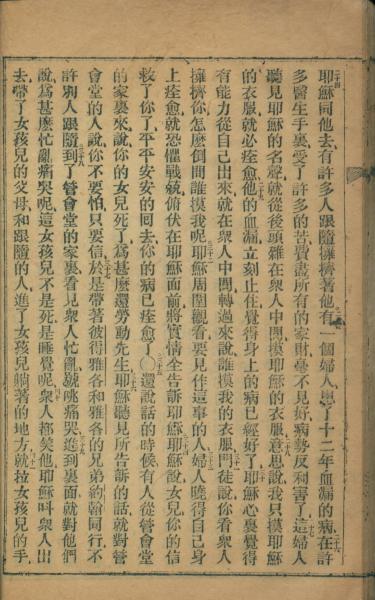 耶穌同他去有許多人跟隨擁擠著他有一個婦人患了十二年血漏的病在許
多醫生手裏受了許多的苦費盡所有的家財毫不見好病勢反利害了這婦人
聽見耶穌的名聲就從後頭雜在衆人中間摸耶穌的衣服意思說我只摸耶穌
的衣服就必痊愈他的血漏立刻止住覺得身上的病已經好了耶穌心裏覺得
有能力從自己出來就在衆人中間轉過來說誰摸我的衣服門徒說你看衆人
擁擠你怎麽倒問誰摸我呢耶穌周圍觀看要見作這事的人婦人曉得自己身
上痊愈就恐懼戰兢俯伏在耶穌面前將實情全告訴耶穌耶穌說女兒你的信
救了你了平平安安的回去你的病已痊愈了○還說話的時候有人從管會堂
的家裏來說你的女兒死了爲甚麽還勞動先生耶穌聽見所告訴的話就對管
會堂的人說你不要怕只要信於是帶著彼得雅各和雅各的兄弟約翰同行不
許別人跟隨到了管會堂的家裏看見衆人忙亂號咷痛哭進到裏面就對他們
說爲甚麽忙亂痛哭呢這女孩兒不是死是睡覺呢衆人都笑他耶穌叫衆人出
去帶了女孩兒的父母和跟隨的人進了女孩兒躺著的地方就拉女孩兒的手